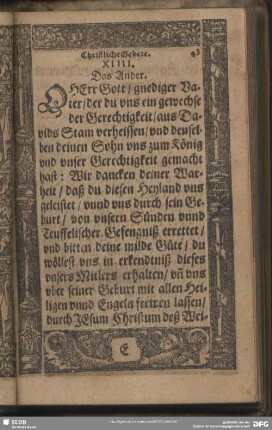 Christliche Gebete. 43
XIIII.
Das Ander.
O HErr Gott / gnediger Va-
ter / der du vns ein gewechse
der Gerechtigkeit / aus Da-
vids Stam verheissen / vnd densel-
ben deinen Sohn vns zum König
vnd vnser Gerechtigkeit gemacht
hast: Wir dancken deiner War-
heit / daß du diesen Heyland vns
geleistet / vnnd vns durch sein Ge-
burt / von vnsern Sünden vnnd
Teuffelischer Gefengniß errettet /
vnd bitten deine milde Güte / du
wöllest vns in erkendtniß dieses
vnsers Mitlers erhalten / vñ vns
vber seiner Geburt mit allen Hei-
ligen vnnd Engeln frewen lassen /
durch JEsum Christum deß Wei-
E
SLUB